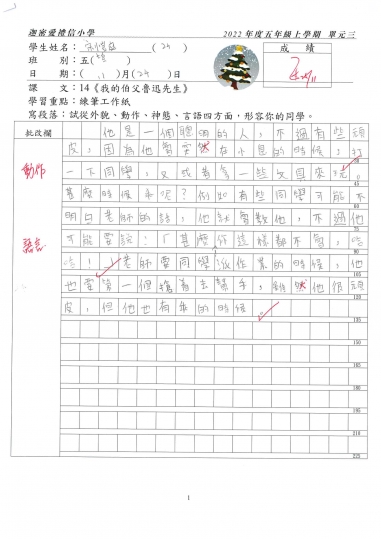 迦密愛禮信小學 2022年度五年級上學期 單元三
學生姓名： (24) 成績
班 別：五( )
日 期：( 11 )月( 24 )日
課 文：14《我的伯父魯迅先生》
學習重點：練筆工作紙
寫段落：試從外貌、動作、神態、言語四方面，形容你的同學。
批改欄
他是一個聰明的人，不過有些頑
皮，因為他會突然在小息的時候，打
動作
一下同學，又或者拿一些文具來玩。
45
甚麼時候乖呢？例如有些同學可能不
60
明白老師的話，他就會教他，不過他
75
語言
可能會說：「甚麼你這樣都不會，哈
90
哈！」老師要同學派作業的時候，他
105
也會第一個搶着去幫手，雖然他很頑
120
皮，但他也有乖的時候
135
150
165
180
195
210
225
1